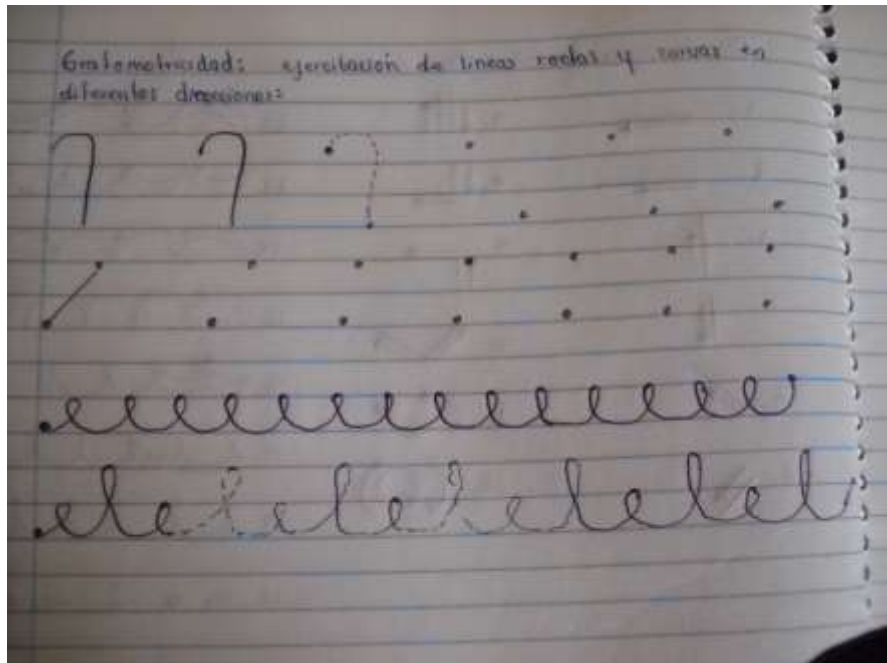 Grafomotricidad: ejercitación de lineas rectas y curvas en
diferentes direcciones: